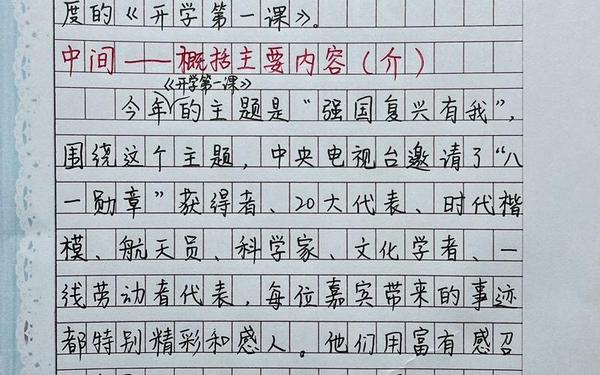 度的《开学第一课》。
中间——概括主要内容(介)
《开学第一课》
今年的主题是“强国复兴有我”,
围绕这个主题,中央电视台邀请了“八
一勋章”获得者、20大代表、时代楷
模、航天员、科学家、文化学者、一
线劳动者代表,每位嘉宾带来的事迹
都特别精彩和感人。他们用富有感召